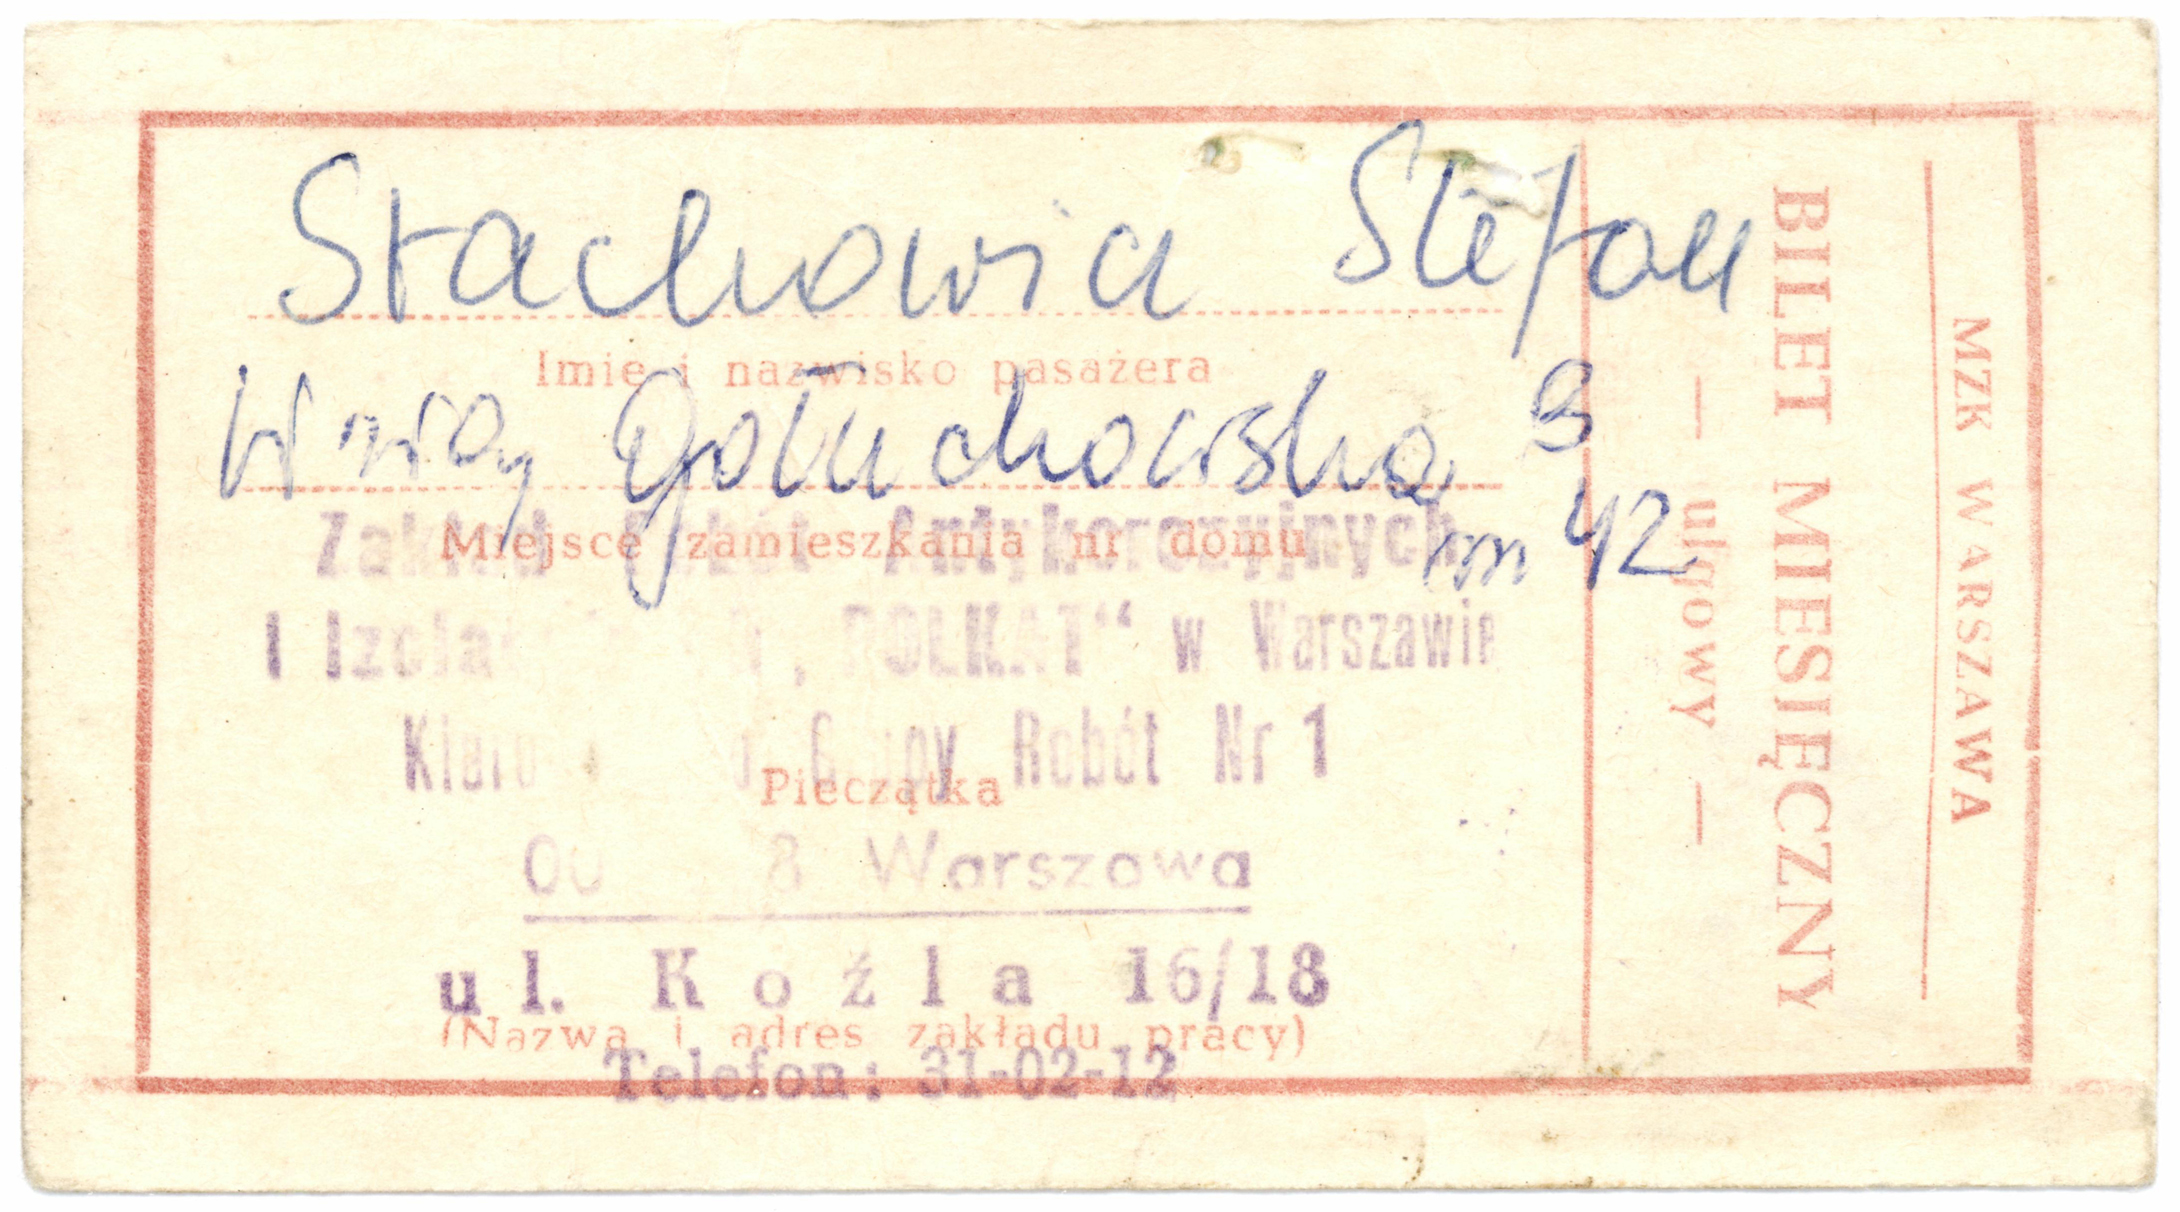 Stachowicz Stefan
Imię i nazwisko pasażera
W-wa Gołuchowska 3
m 42
Miejsce zamieszkania nr domu
Zakład Robót Antykorozyjnych
I „POLKAT“ w Warszawie
Grupy Robót Nr 1
Pieczątka
Warszawa
ul. Koźla 16/18
(Nazwa i adres zakładu pracy)
Telefon: 31-02-12
— ulgowy —
BILET MIESIĘCZNY
MZK WARSZAWA